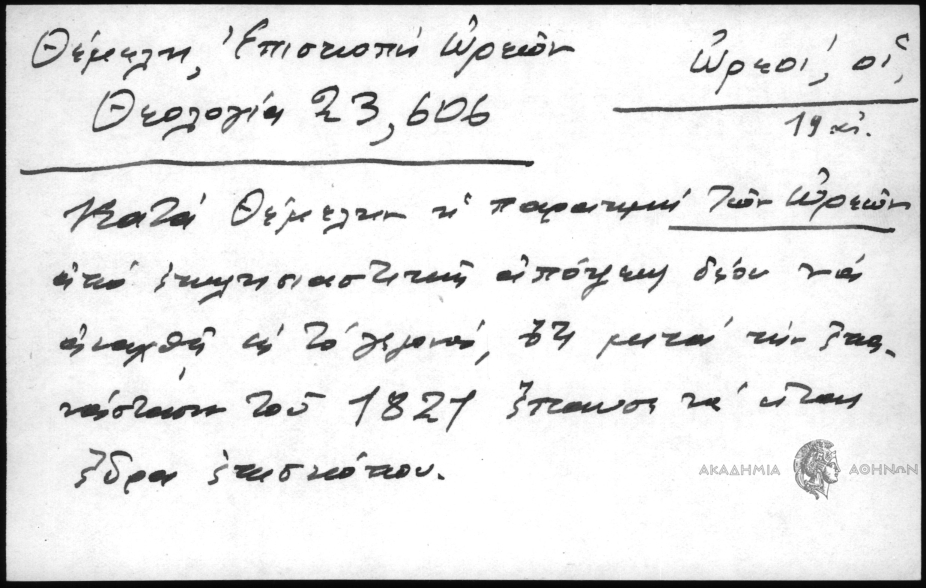 Θέμελη, Ἐπισκοπή Ὠρεῶν
Θεολογία 23, 606
Ὠρεοί, οἱ,
19 αἰ.
Κατά Θέμελην ἡ παρακμή τῶν Ὠρεῶν
ἀπό ἐκκλησιαστικῆς ἀπόψεως δέον νά
ἀναχθῇ εἰς τό γεγονός, ὅτι μετά τήν ἐπα-
νάστασιν τοῦ 1821 ἔπαυσε νά εἶναι
ἕδρα ἐπισκόπου.
ΑΚΑΔΗΜΙΑ ΑΘΗΝΩΝ